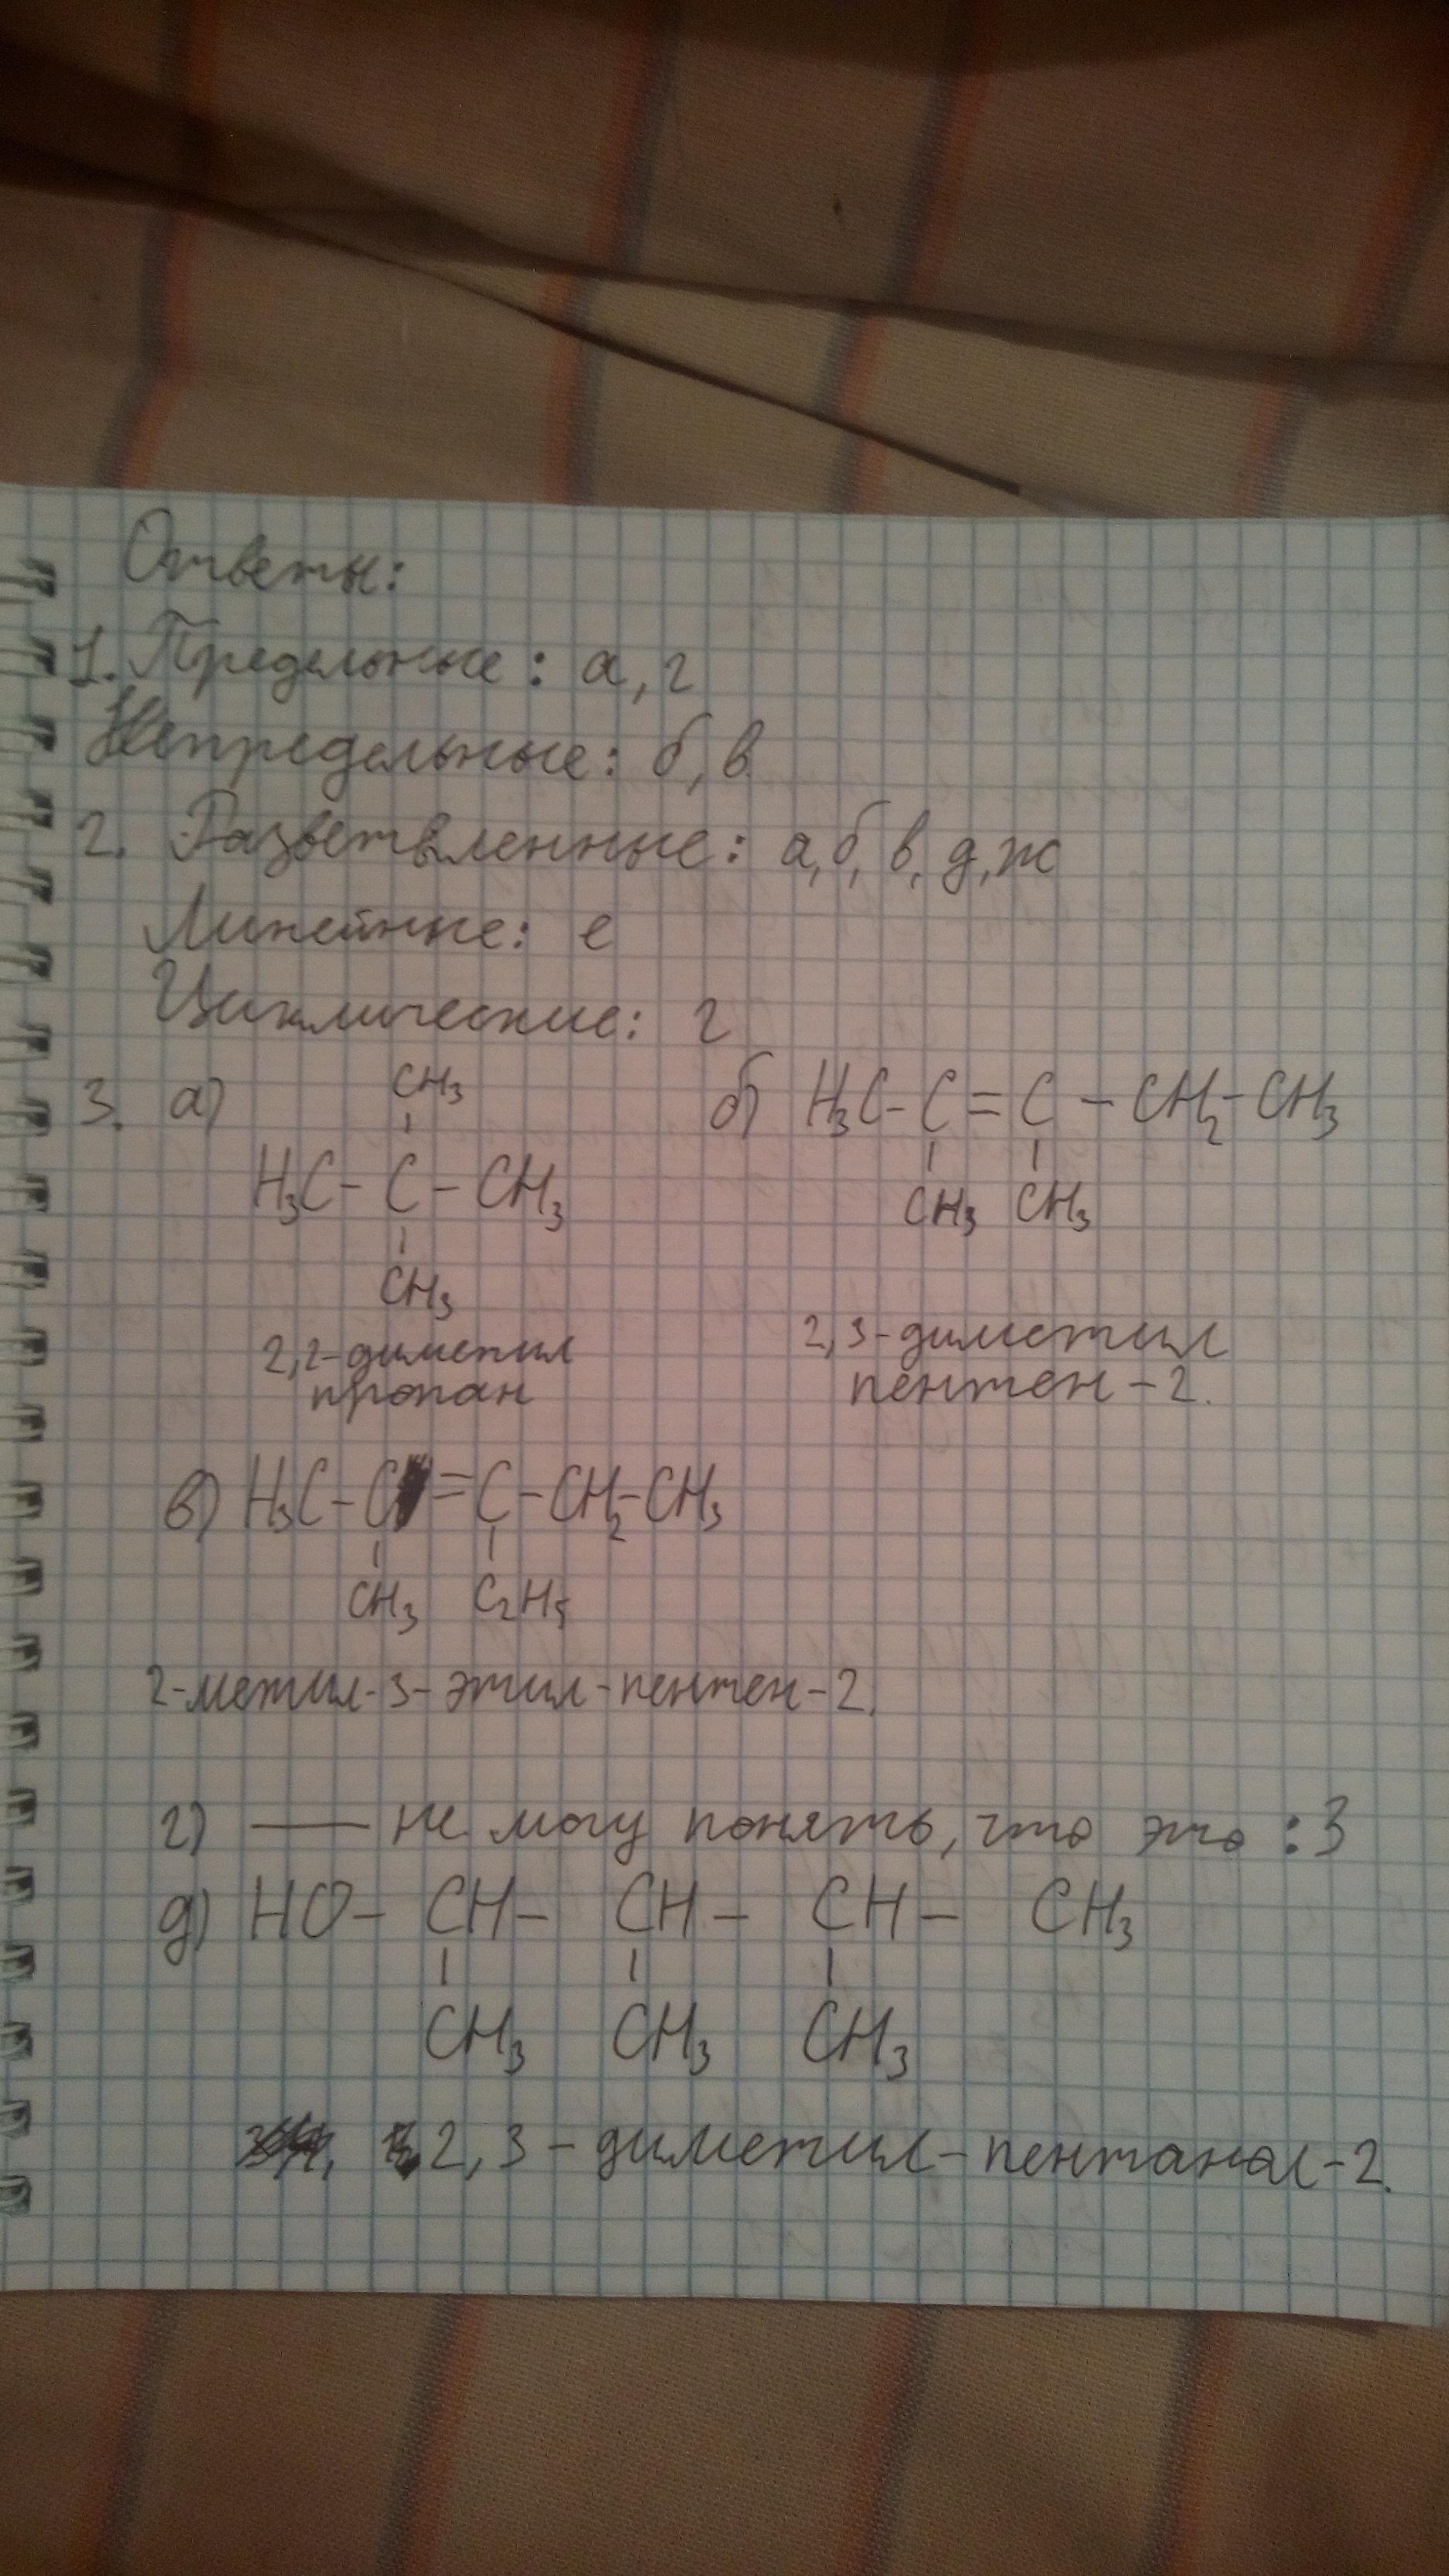 Ответы:
1. Предельные: а, г
Непредельные: б, в
2. Разветвленные: а, б, в, д, ж
Линейные: е
Циклические: г
3. а)
CH3
H3C - C - CH3
CH3
2,2-диметил
пропан
б) H3C - C = C - CH2 - CH3
CH3 CH3
2,3-диметил
пентен-2.
в) H3C - C = C - CH2 - CH3
CH3 C2H5
2-метил-3-этил-пентен-2.
г) — не могу понять, что это :3
д) HO - CH - CH - CH - CH3
CH3 CH3 CH3
2,3-диметил-пентанол-2.